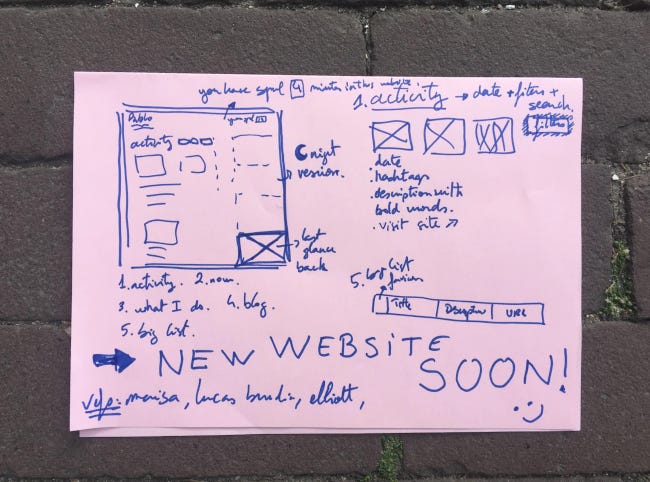 you have spent 4 minutes in this website.
Pablo
activity
night version.
last glance back
1. activity. 2. now.
3. what I do. 4. blog.
5. big list.
1. activity → date + filters + search.
filters
date
.hashtags
.description with
bold words.
.visit site ↗
5. big list
favicon
Title Description URL
→ NEW WEBSITE
SOON! :)
marisa, lucas elliott,